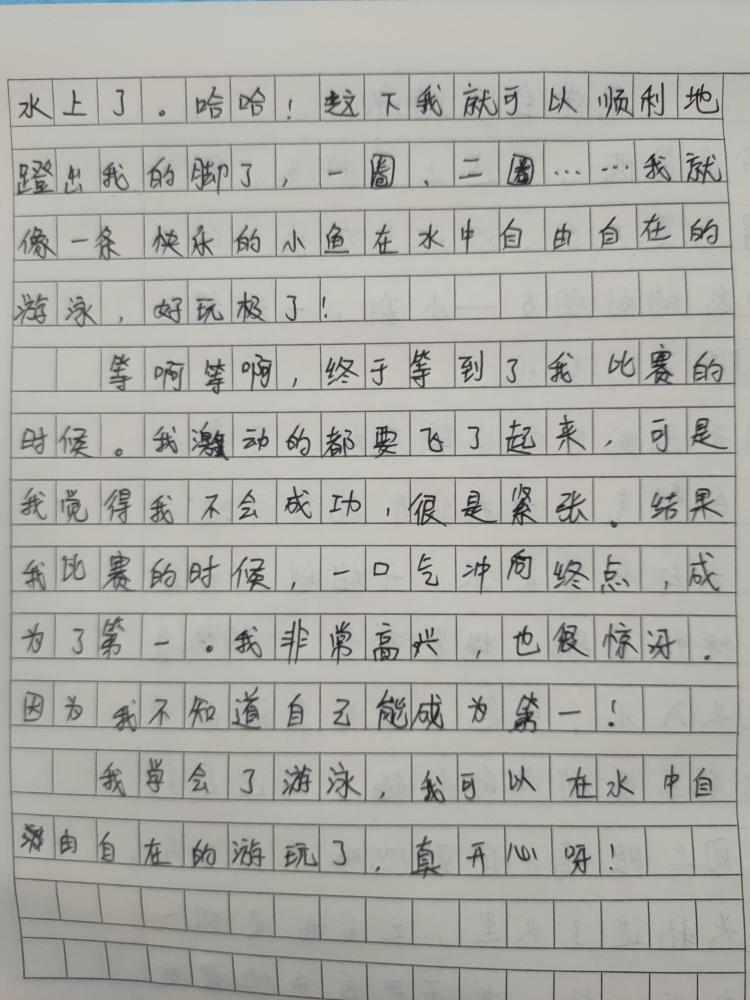 水上了。哈哈！这下我就可以顺利地
蹬出我的脚了，一圈、二圈……我就
像一条快乐的小鱼在水中自由自在的
游泳，好玩极了！
等啊等啊，终于等到了我比赛的
时候。我激动的都要飞了起来，可是
我觉得我不会成功，很是紧张。结果
我比赛的时候，一口气冲向终点，成
为了第一。我非常高兴，也很惊讶.
因为我不知道自己能成为第一！
我学会了游泳，我可以在水中自
由自在的游玩了，真开心呀！